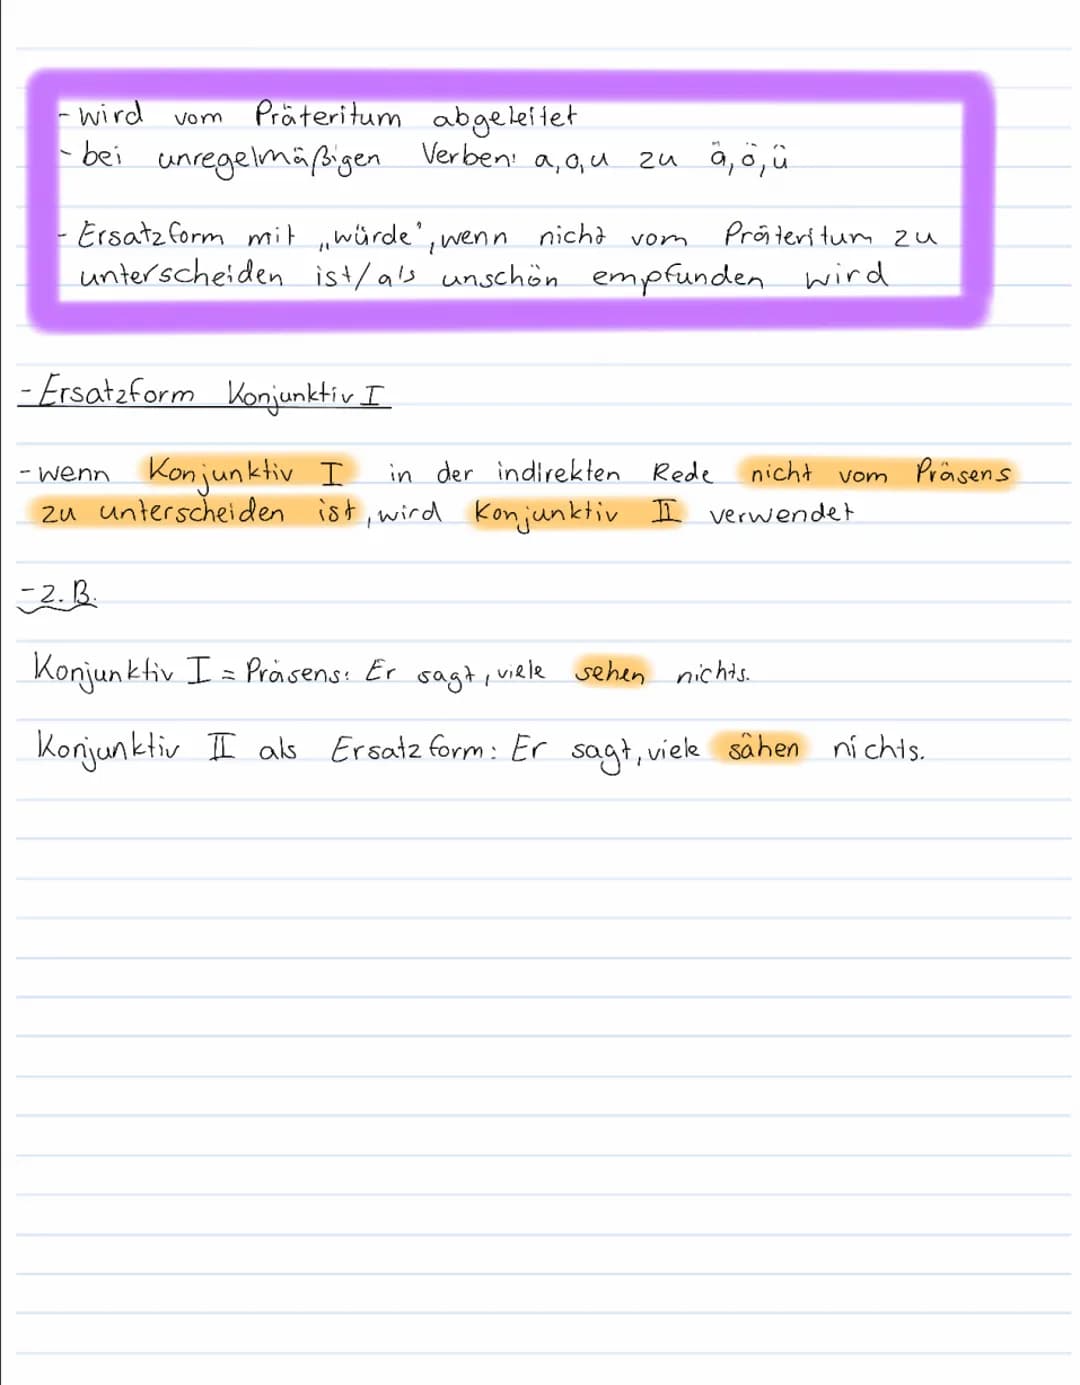 - wird vom Präteritum abgeleitet
- bei unregelmäßigen Verben: a, o, u zu ä, ö, ü
- Ersatzform mit „würde", wenn nicht vom Präteritum zu
unterscheiden ist/als unschön empfunden wird
- Ersatzform Konjunktiv I
- wenn Konjunktiv I in der indirekten Rede nicht vom Präsens
zu unterscheiden ist, wird Konjunktiv II verwendet
- z.B.
Konjunktiv I = Präsens: Er sagt, viele sehen nichts.
Konjunktiv II als Ersatzform: Er sagt, viele sähen nichts.